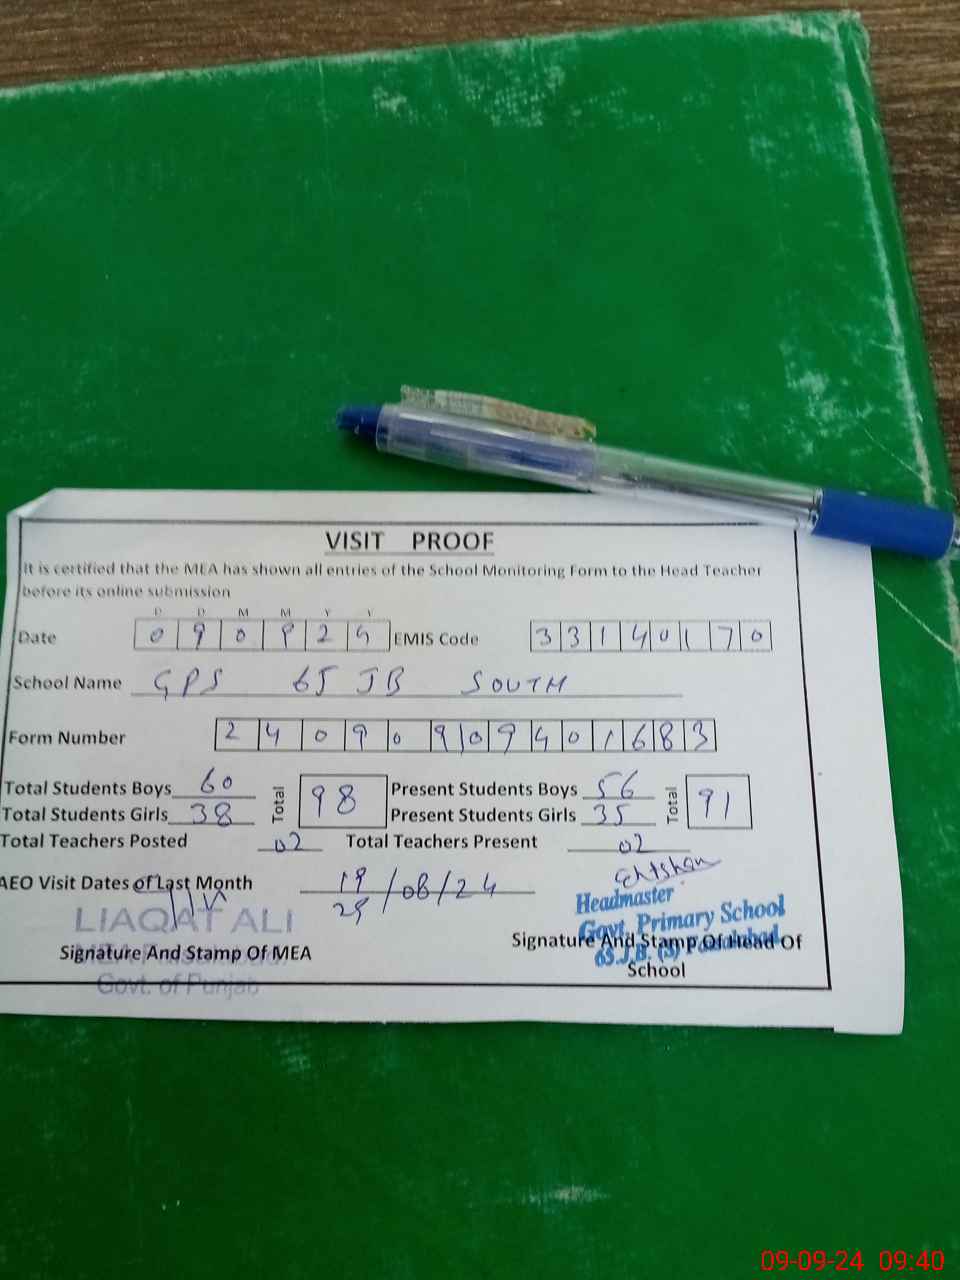 VISIT PROOF
It is certified that the MEA has shown all entries of the School Monitoring Form to the Head Teacher
before its online submission
D D M M Y Y
Date 0 9 0 9 2 4 EMIS Code 3 3 1 4 0 1 7 0
School Name GPS 65 JB SOUTH
Form Number 2 4 0 9 0 9 0 9 4 0 1 6 8 3
Total Students Boys 60 Total 98 Present Students Boys 56 Total 91
Total Students Girls 38 Present Students Girls 35
Total Teachers Posted 02 Total Teachers Present 02
AEO Visit Dates of Last Month 19 /08/24
25
Ehtshan
LIAQAT ALI
Signature And Stamp Of MEA
Govt. of Punjab
Headmaster
Govt. Primary School
65 J.B. (S) Faisalabad
Signature And Stamp Of Head Of
School
09-09-24 09:40